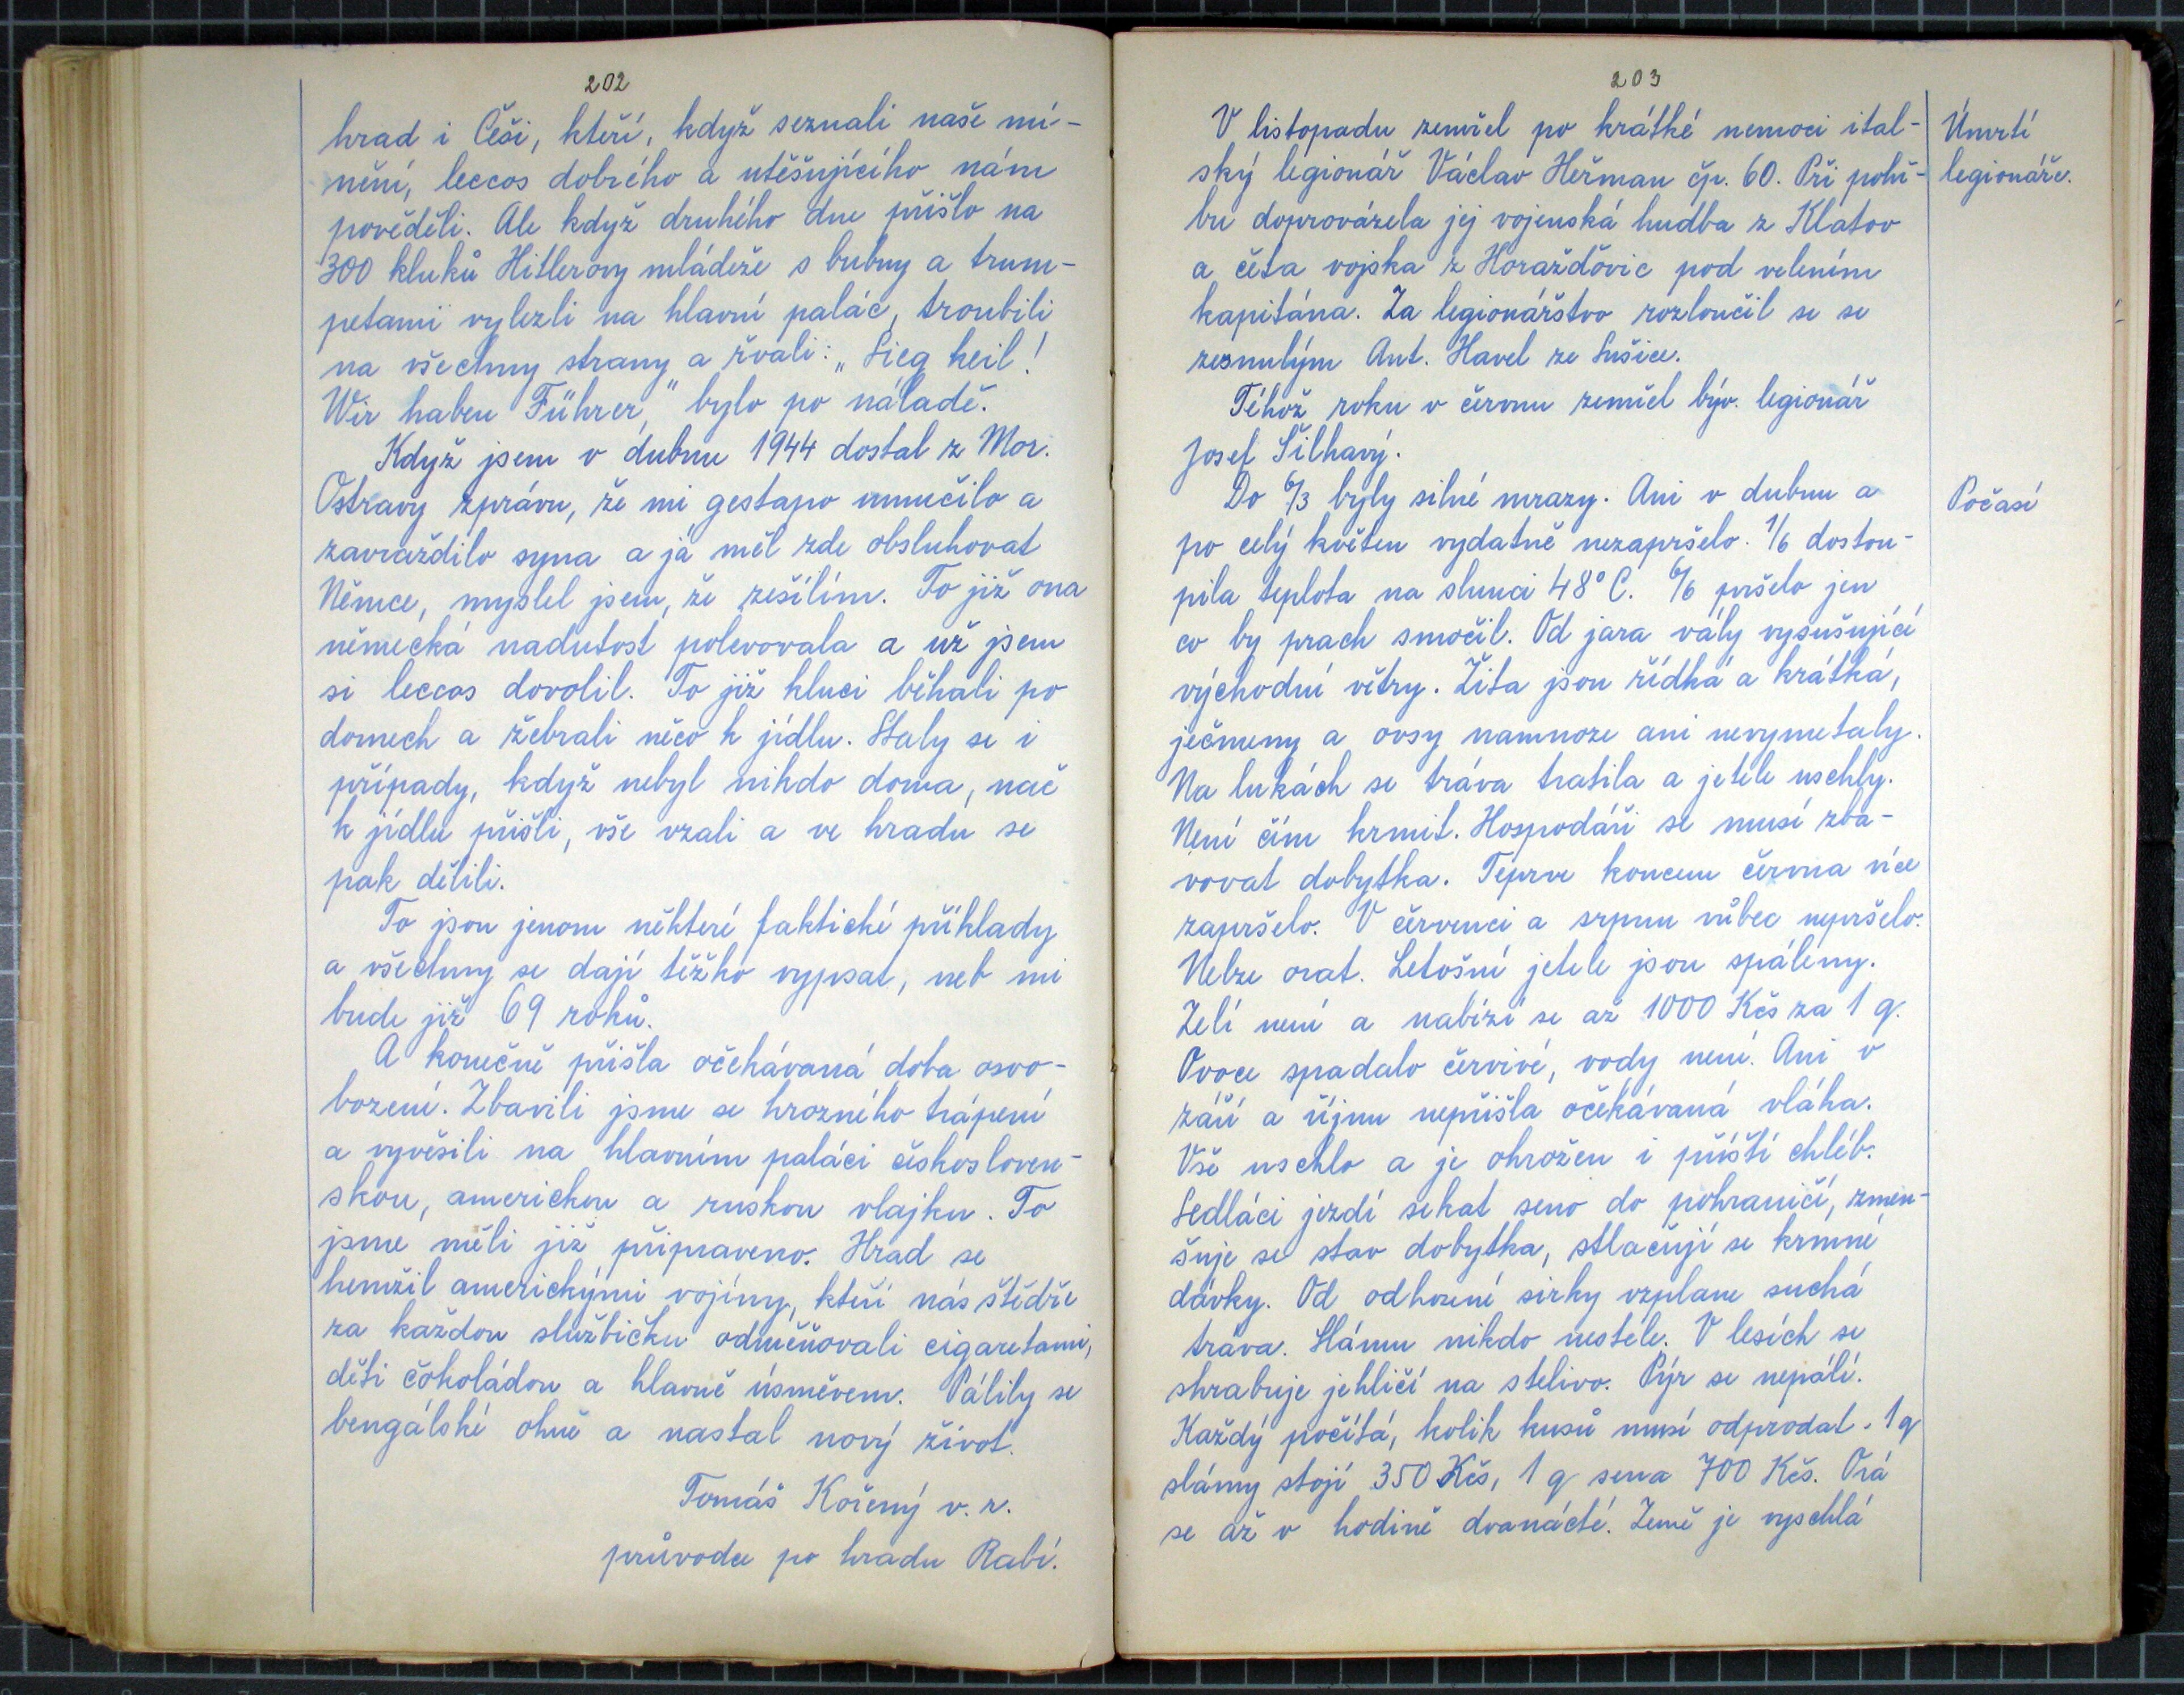 202
hrad i Češi, kteří, když seznali naše mí-
nění, leccos dobrého a utěšujícího nám
pověděli. Ale když druhého dne přišlo na
300 kluků Hitlerovy mládeže s bubny a trum-
petami vylezli na hlavní palác, troubili
na všechny strany a řvali: „Sieg heil!
Wir haben Führer," bylo po náladě.
Když jsem v dubnu 1944 dostal z Mor.
Ostravy zprávu, že mi gestapo umučilo a
zavraždilo syna a já měl zde obsluhovat
Němce, myslel jsem, že zešílím. To již ona
německá nadutost polevovala a už jsem
si leccos dovolil. To již kluci běhali po
domech a žebrali něco k jídlu. Staly se i
případy, když nebyl nikdo doma, nač
k jídlu přišli, vše vzali a ve hradu se
pak dělili.
To jsou jenom některé faktické příklady
a všechny se dají těžko vypsat, neb mi
bude již 69 roků.
A konečně přišla očekávaná doba osvo-
bození. Zbavili jsme se hrozného trápení
a vyvěsili na hlavním paláci českosloven-
skou, americkou a ruskou vlajku. To
jsme měli již připraveno. Hrad se
hemžil americkými vojíny, kteří nás štědře
za každou službičku odměňovali cigaretami,
děti čokoládou a hlavně úsměvem. Pálily se
bengálské ohně a nastal nový život.
Tomáš Kořený v. r.
průvodce po hradu Rabí.
203
V listopadu zemřel po krátké nemoci ital-
ský legionář Václav Heřman čp. 60. Při pohř-
bu doprovázela jej vojenská hudba z Klatov
a četa vojska z Horažďovic pod velením
kapitána. Za legionářstvo rozloučil se se
zesnulým Ant. Havel ze Sušice.
Téhož roku v červnu zemřel býv. legionář
Josef Šilhavý.
Úmrtí
legionáře.
Do 6/3 byly silné mrazy. Ani v dubnu a
po celý květen vydatně nezapršelo. 1/6 dostou-
pila teplota na slunci 48° C. 6/6 pršelo jen
co by prach smočil. Od jara vály vysušující
východní větry. Žita jsou řídká a krátká,
ječmeny a ovsy namnoze ani nevymetaly.
Na lukách se tráva tratila a jetele uschly.
Není čím krmit. Hospodáři se musí zba-
vovat dobytka. Teprve koncem června více
zapršelo. V červenci a srpnu vůbec nepršelo.
Nelze orat. Letošní jetele jsou spáleny.
Zelí není a nabízí se až 1000 Kčs za 1 q.
Ovoce spadalo červivé, vody není. Ani v
září a říjnu nepřišla očekávaná vláha.
Vše uschlo a je ohrožen i příští chléb.
Sedláci jezdí sekat seno do pohraničí, zmen-
šuje se stav dobytka, stlačují se krmné
dávky. Od odhozené sirky vzplane suchá
tráva. Slámu nikdo nestele. V lesích se
shrabuje jehličí na stelivo. Pýr se nepálí.
Každý počítá, kolik kusů musí odprodat. 1 q
slámy stojí 350 Kčs, 1 q sena 700 Kčs. Orá
se až v hodině dvanácté. Země je vyschlá
Počasí